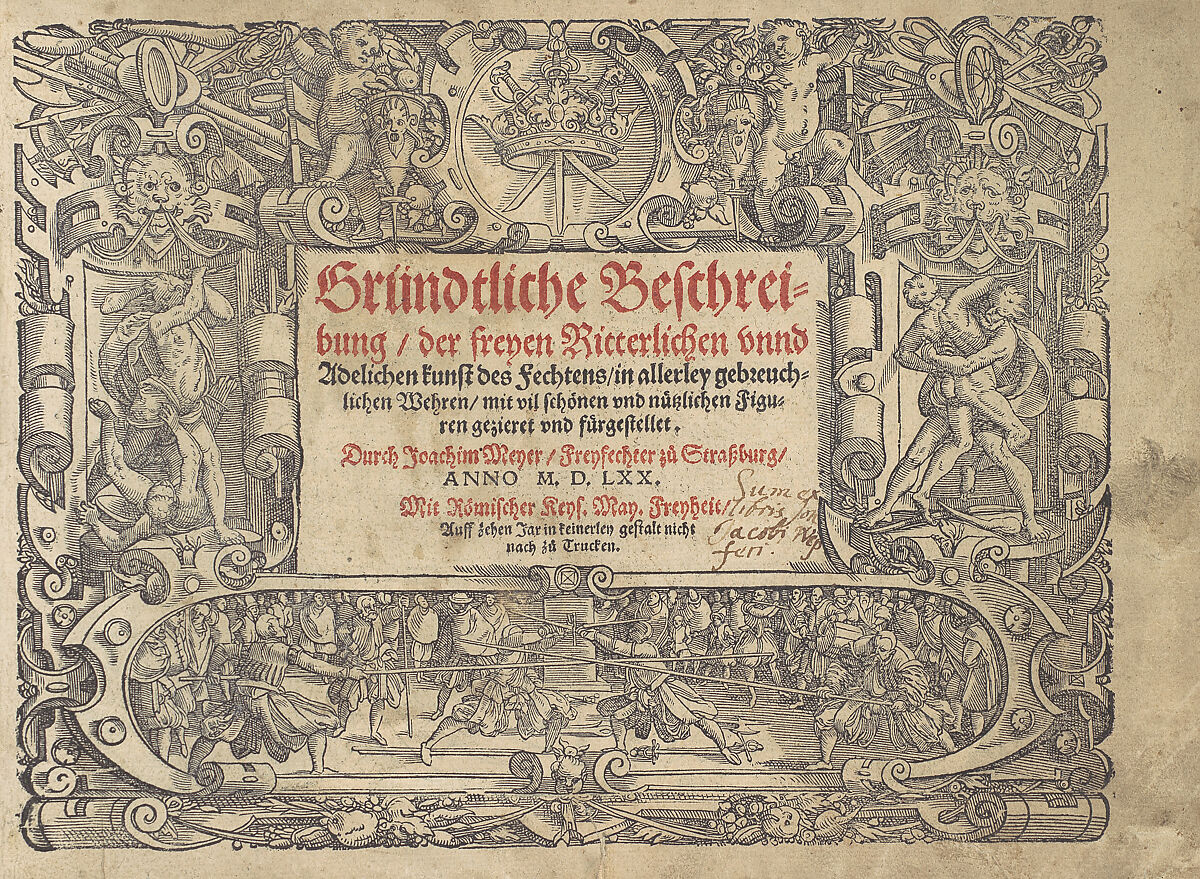 Gründtliche Beschrei-
bung / der freyen Ritterlichen vnnd
Adelichen kunst des Fechtens / in allerley gebreuch-
lichen Wehren / mit vil schönen vnd nützlichen Figu-
ren gezieret vnd fürgestellet.
Durch Joachim Meyer / Freyfechter zů Straßburg /
ANNO M. D. LXX.
Mit Römischer Keys. May. Freyheit /
Auff zehen Jar in keinerley gestalt nicht
nach zů Trucken.
Sum ex
libris
Jacobi
feri.